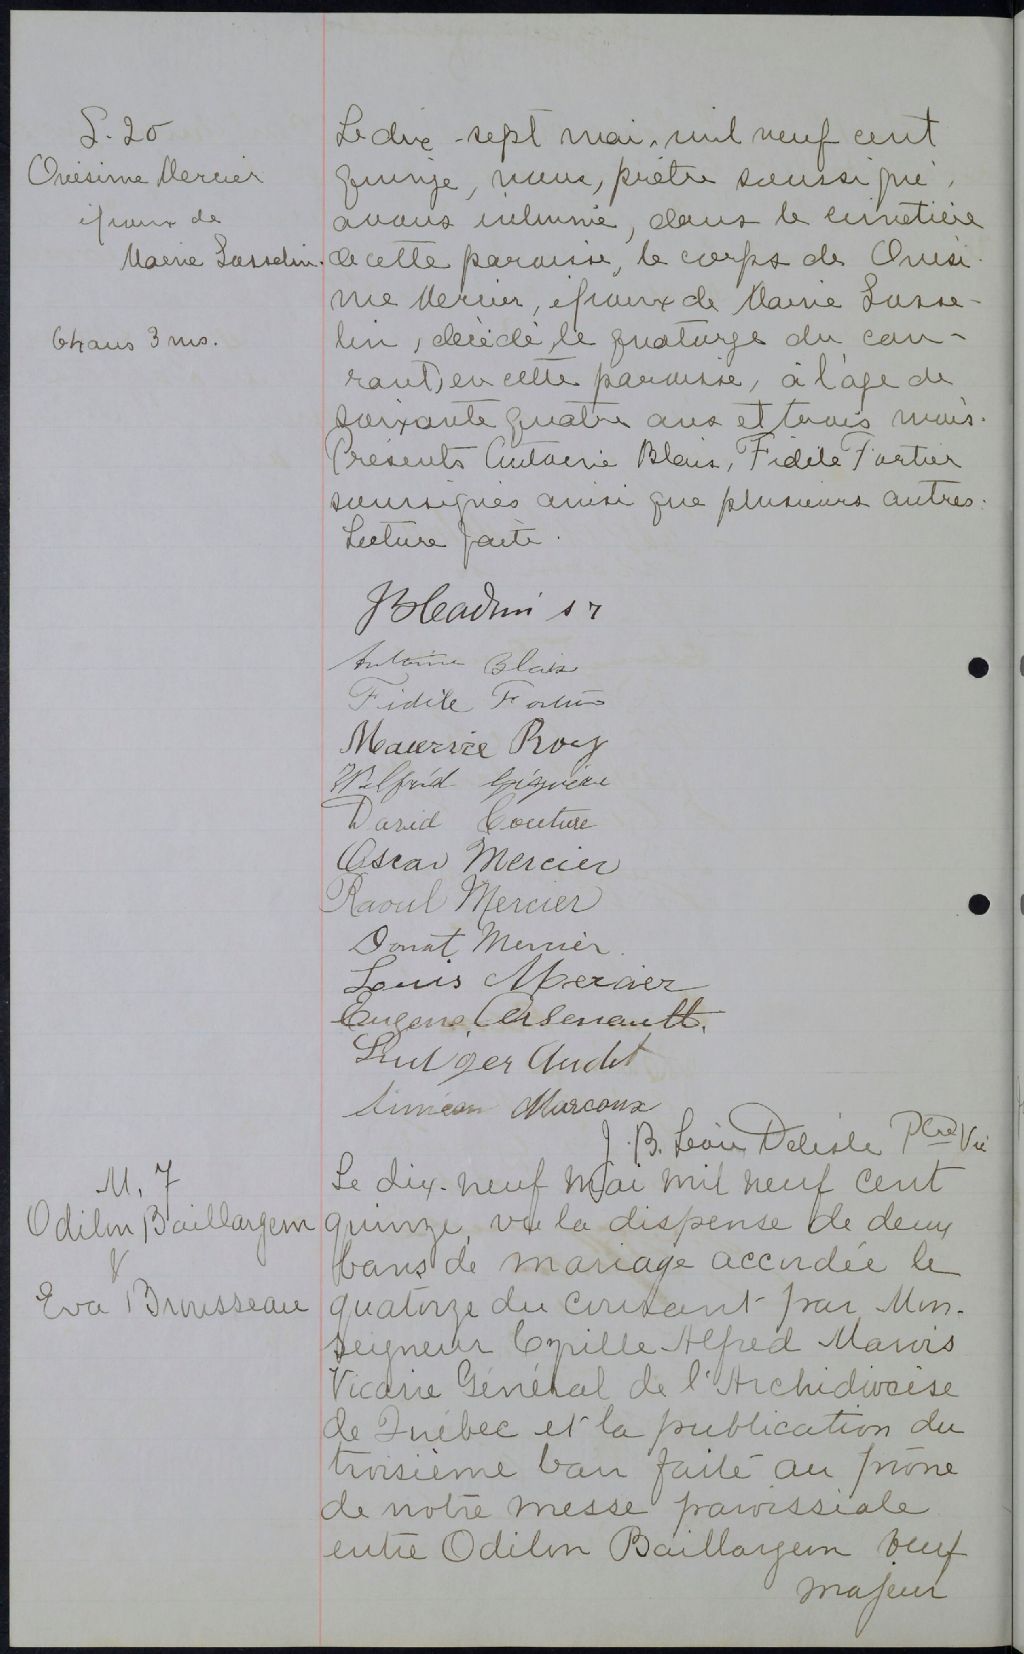 S. 20
Onésime Mercier
époux de
Marie Gosselin.
64 ans 3 ms.
Le dix-sept mai, mil neuf cent
quinze, nous, prêtre soussigné,
avons inhumé, dans le cimetière
de cette paroisse, le corps de Onési-
me Mercier, époux de Marie Gosse-
lin, décédé, le quatorze du cou-
rant, en cette paroisse, à l'âge de
soixante quatre ans et trois mois.
Présents Antoine Blais, Fidèle Fortier
soussignés ainsi que plusieurs autres.
Lecture faite.
Antoine Blais
Fidèle Fortier
Maurice Roy
Wilfrid Giguère
David Couture
Oscar Mercier
Raoul Mercier
Donat Mercier
Louis Mercier
Eugene Arsenault.
Ludger Audet
Siméon Marcoux
J. B. Léon Delisle Ptre Vic
M. 7
Odilon Baillargeon
&
Eva Brousseau
Le dix-neuf Mai mil neuf cent
quinze, vu la dispense de deux
bans de mariage accordée le
quatorze du courant par Mon-
seigneur Cyrille Alfred Marois
Vicaire Général de l'Archidiocèse
de Québec et la publication du
troisième ban faite au prône
de notre messe paroissiale
entre Odilon Baillargeon veuf
majeur